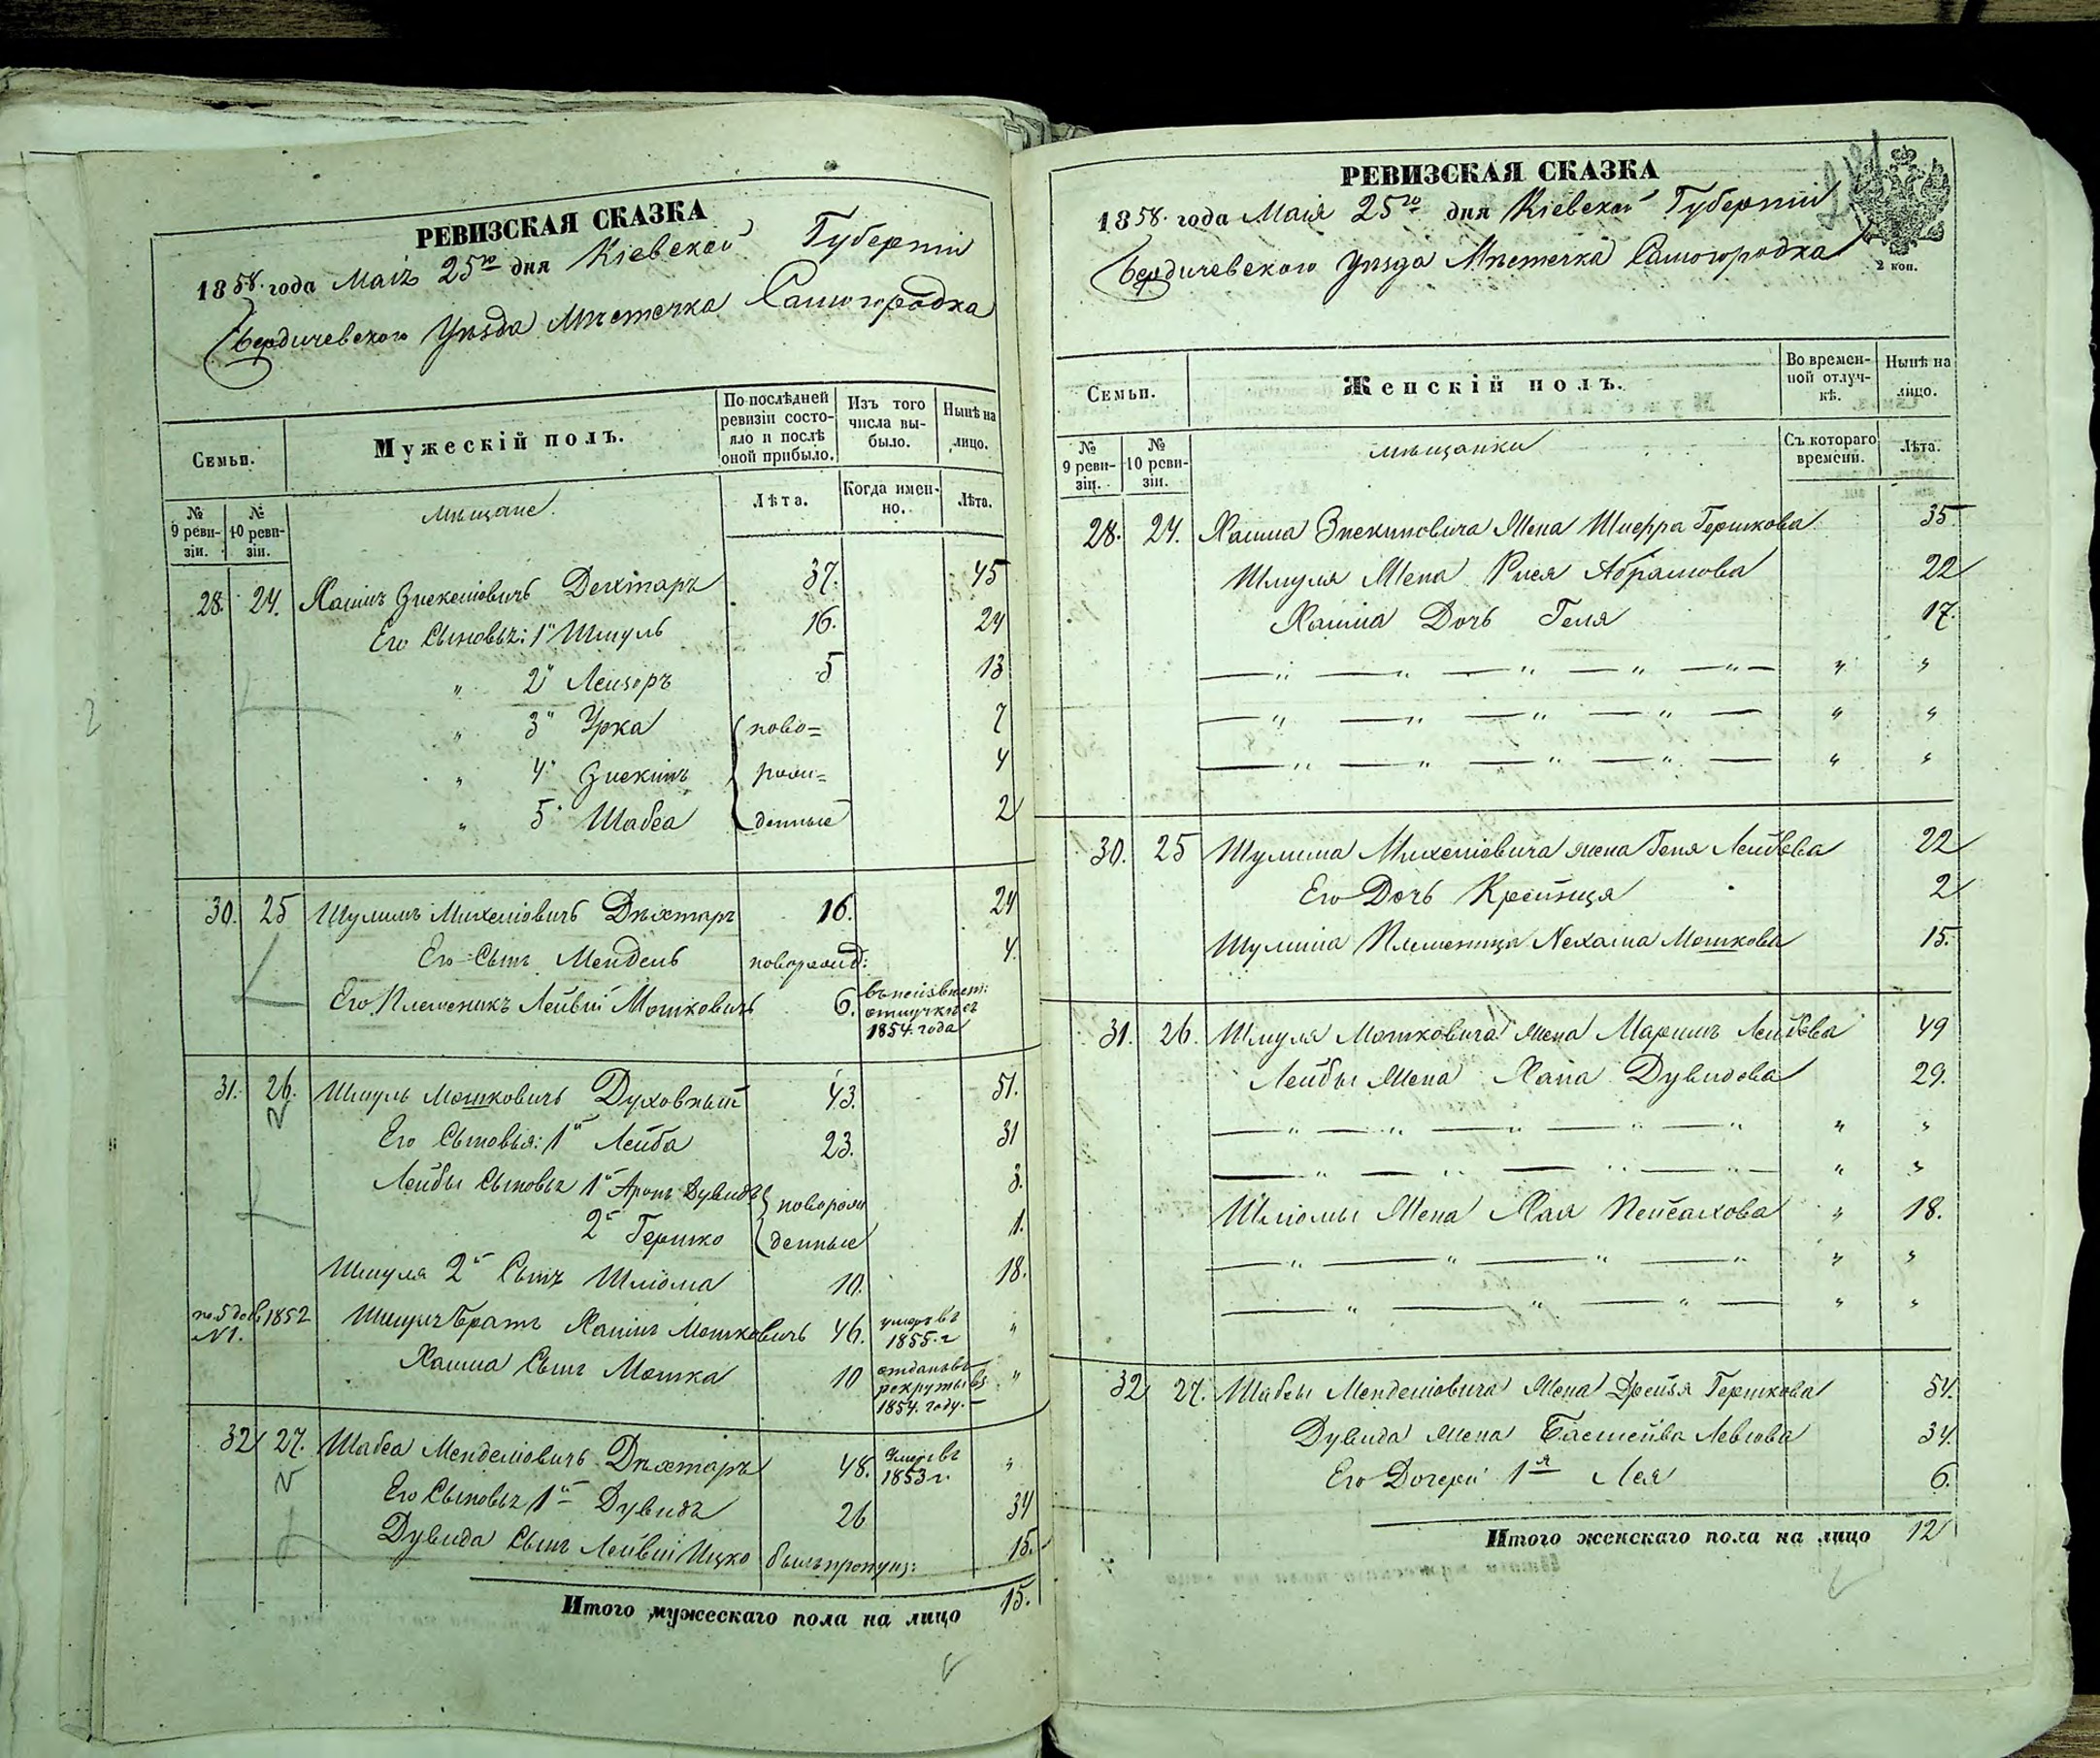 РЕВИЗСКАЯ СКАЗКА
1858. года Маія 25го дня Кіевской Губерніи
Бердичевского Уѣзда Мѣстечка Самогородка
Семьи.
Мужескій полъ.
По послѣдней ревизіи состояло и послѣ оной прибыло.
Изъ того числа выбыло.
Нынѣ на лицо.
№ 9 ревизіи.
№ 10 ревизіи.
мѣщане.
Лѣта.
Когда именно.
Лѣта.
28. 24. Хаимъ Дехтяръ 37. 45
Его Сыновья: 1й Шмуль 16. 24
" 2й Лейзоръ 5 13
" 3й Урка ново= 7
" 4й рож= 4
" 5й Шабса денные 2
30. 25 Шулимъ Михелiовичъ Дѣхтяръ 16. 24
Его Сынъ Мендель новорожд: 4.
Его Племеникъ Лейви Мошковичъ 6. въ неизвѣст: отлучкѣ съ 1854. года
31. 26. Шмуль Мошковичъ Духовный 43. 51.
Его Сыновья: 1й Лейба 23. 31
Лейбы Сыновья 1й Аронъ Дувидъ новорож 3.
2й Гершко денные 1.
Шмуля 2й Сынъ Шлiома 10. 18.
1852 №1. Шмуля Братъ Хаимъ Мошковичъ 46. умеръ въ 1855. г "
Хаима Сынъ Мошка 10 отданъ въ рекруты въ 1854. году. "
32 27. Шабса Менделiовичъ Дѣхтяръ 48. Умеръ въ 1853 г. "
Его Сыновья 1й Дувидъ 26 34
Дувида Сынъ Лейви Ицко былъ пропущ: 15.
Итого мужескаго пола на лицо 15.
РЕВИЗСКАЯ СКАЗКА
1858. года Маія 25го дня Кіевской Губерніи
Бердичевского Уѣзда Мѣстечка Самогородка
2 коп.
Семьи.
Женскій полъ.
Во временной отлучкѣ.
Нынѣ на лицо.
№ 9 ревизіи.
№ 10 ревизіи.
мѣщанки
Съ котораго времени.
Лѣта.
28. 24. Хаима Жена Шифра Гершкова 35
Шмуля Жена Рися Абрамова 22
Хаима Дочь Геня 17.
" "
" "
" "
30. 25 Шулима Михелiовича жена Геня Лейбова 22
Его Дочь Крейнця 2
Шулима Племеница Нехама Мошкова 15.
31. 26. Шмуля Мошковича Жена Маримъ Лейбова 49
Лейбы Жена Хана Дувидова 29.
" "
" "
Шлiомы Жена Хая Пейсахова " 18.
" "
" "
32 27. Шабсы Менделiовича Жена Дрейзя Гершкова 54.
Дувида жена Басшейва Левкова 34.
Его Дочери 1я Лея 6.
Итого женскаго пола на лицо 12